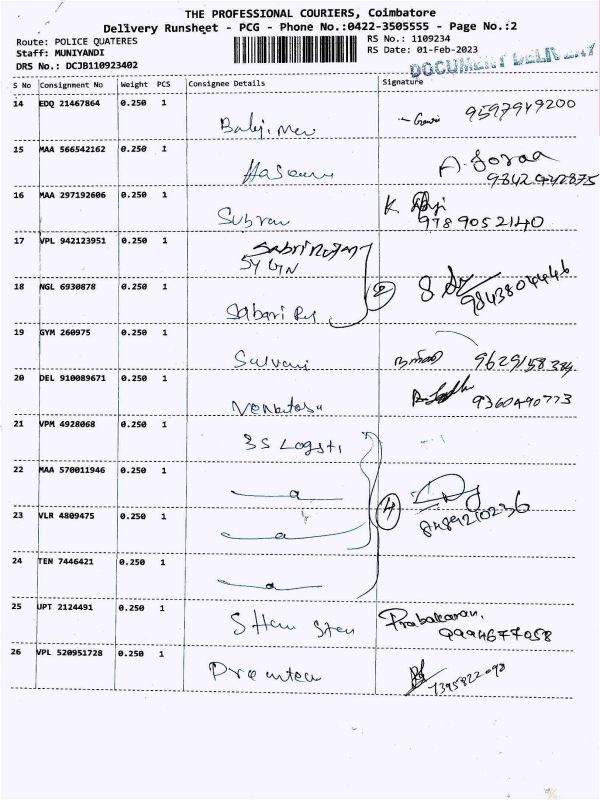 THE PROFESSIONAL COURIERS, Coimbatore
Delivery Runsheet - PCG - Phone No.:0422-3505555 - Page No.:2
Route: POLICE QUATERES
Staff: MUNIYANDI
DRS No.: DCJB110923402
RS No.: 1109234
RS Date: 01-Feb-2023
DOCUMENT DELIVERY
S No Consignment No Weight PCS Consignee Details Signature
14 EDQ 21467864 0.250 1 9597949200
15 MAA 566542162 0.250 1
9342942875
16 MAA 297192606 0.250 1 K
9789052140
17 VPL 942123951 0.250 1
18 NGL 6930878 0.250 1 Sabari 2 9843804446
19 GYM 260975 0.250 1 Salvani 9629158384
20 DEL 910089671 0.250 1 9360490773
21 VPM 4928068 0.250 1 3S Logsti
22 MAA 570011946 0.250 1 a
23 VLR 4809475 0.250 1 a 4 8489210236
24 TEN 7446421 0.250 1 a
25 UPT 2124491 0.250 1 Prabakaran,
9994677058
26 VPL 520951728 0.250 1 7395822098